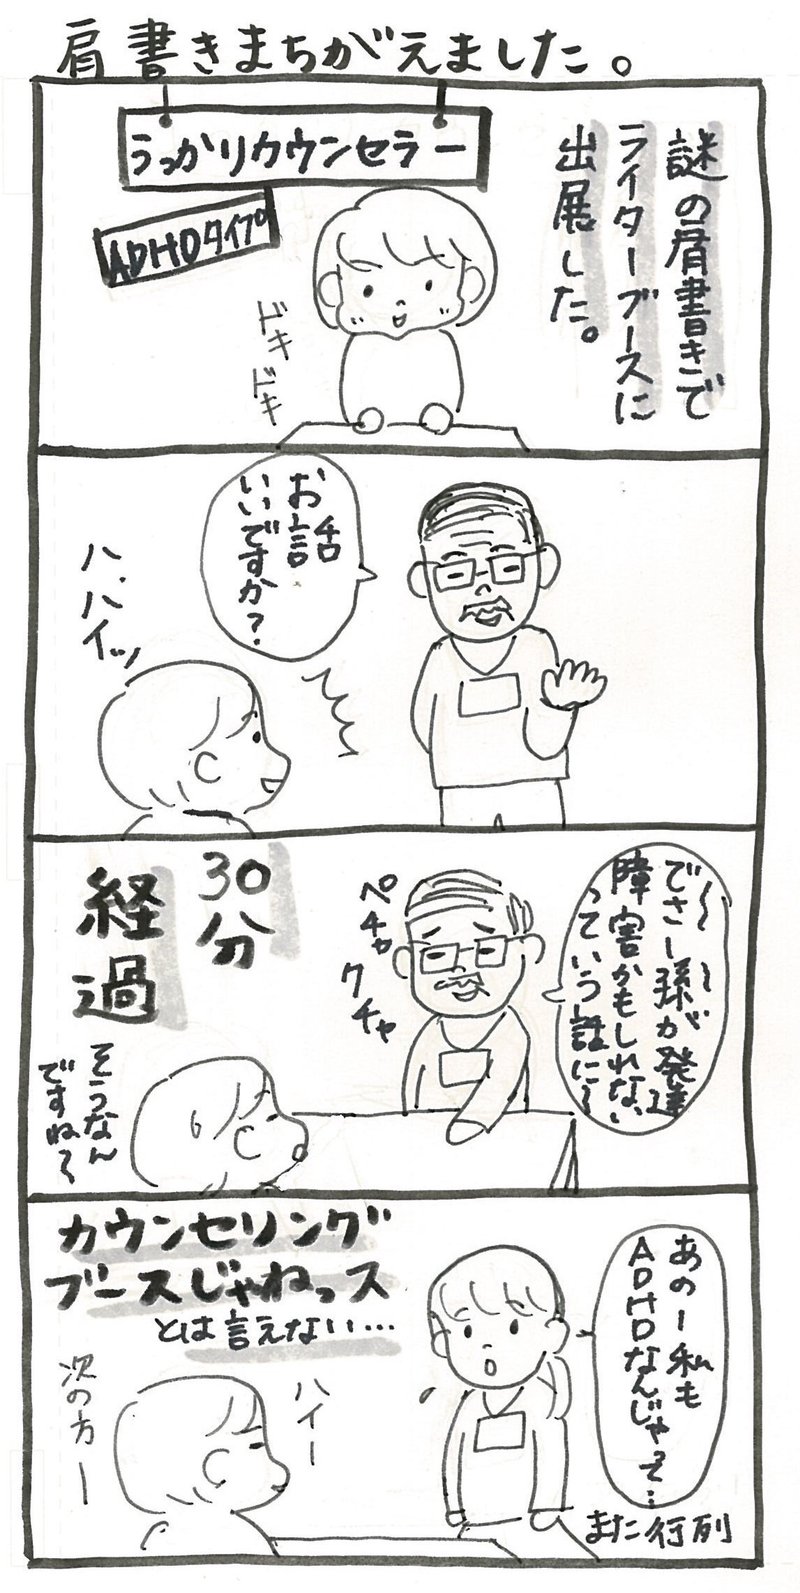 肩書きまちがえました。
謎の肩書きで
ライターブースに
出展した。
うっかりカウンセラー
ADHDタイプ
ドキ
ドキ
お話
いいですか?
ハ、ハイッ
30分
経過
でさー孫が発達
障害かもしれない
っていう話に〜
ペチャ
クチャ
そうなん
ですね〜
カウンセリング
ブースじゃねっス
とは言えない…
あのー私も
ADHDなんじゃって…
ハイー
次の方ー
また行列